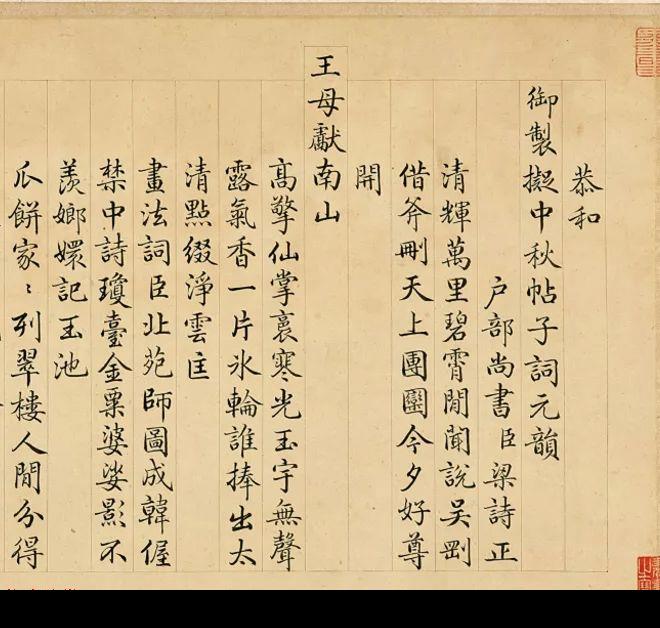 恭和
御製擬中秋帖子詞元韻
戶部尚書臣梁詩正
清輝萬里碧霄閒聞說吴剛
借斧刪天上團圞今夕好尊
開
王母獻南山
高擎仙掌裛寒光玉宇無聲
露氣香一片氷輪誰捧出太
清點綴淨雲匡
畫法詞臣北苑師圖成韓偓
禁中詩瓊臺金粟婆娑影不
羨嫏嬛記玉池
瓜餅家〻列翠樓人閒分得